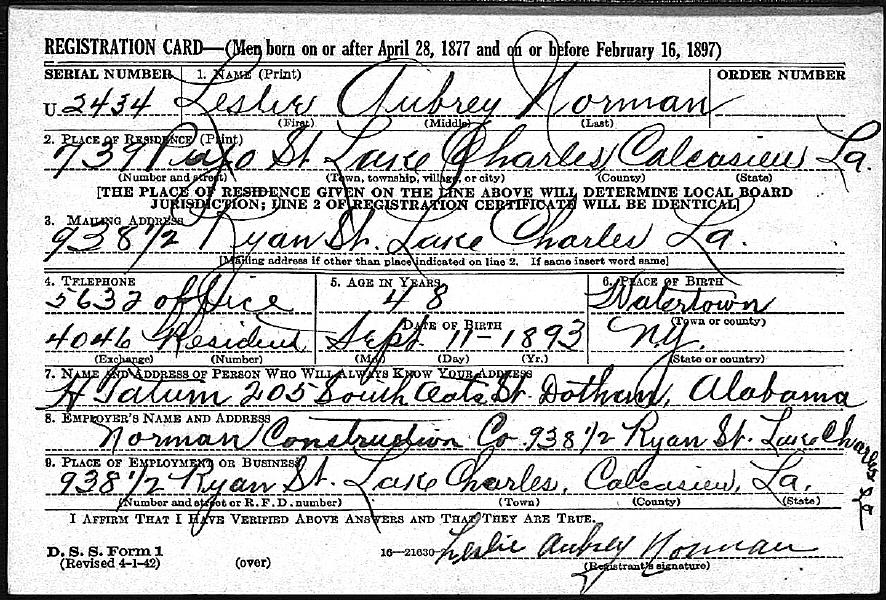 REGISTRATION CARD—(Men born on or after April 28, 1877 and on or before February 16, 1897)
SERIAL NUMBER 1. NAME (Print) ORDER NUMBER
U 2434 Leslie Aubrey Norman
(First) (Middle) (Last)
2. PLACE OF RESIDENCE (Print)
739 Pujo St Lake Charles Calcasieu La.
(Number and street) (Town, township, village, or city) (County) (State)
[THE PLACE OF RESIDENCE GIVEN ON THE LINE ABOVE WILL DETERMINE LOCAL BOARD
JURISDICTION; LINE 2 OF REGISTRATION CERTIFICATE WILL BE IDENTICAL]
3. MAILING ADDRESS
938 1/2 Ryan St. Lake Charles La.
[Mailing address if other than place indicated on line 2. If same insert word same]
4. TELEPHONE 5. AGE IN YEARS 6. PLACE OF BIRTH
5632 office 48 Watertown
DATE OF BIRTH (Town or county)
4046 Resident Sept. 11-1893 NY.
(Exchange) (Number) (Mo.) (Day) (Yr.) (State or country)
7. NAME AND ADDRESS OF PERSON WHO WILL ALWAYS KNOW YOUR ADDRESS
H Tatum 205 South St. Dothan, Alabama
8. EMPLOYER'S NAME AND ADDRESS
Norman Construction Co. 938 1/2 Ryan St. Lake Charles La
9. PLACE OF EMPLOYMENT OR BUSINESS
938 1/2 Ryan St. Lake Charles, Calcasieu, La.
(Number and street or R. F. D. number) (Town) (County) (State)
I AFFIRM THAT I HAVE VERIFIED ABOVE ANSWERS AND THAT THEY ARE TRUE.
D. S. S. Form 1
(Revised 4-1-42) (over) 16—21630 Leslie Aubrey Norman
(Registrant's signature)